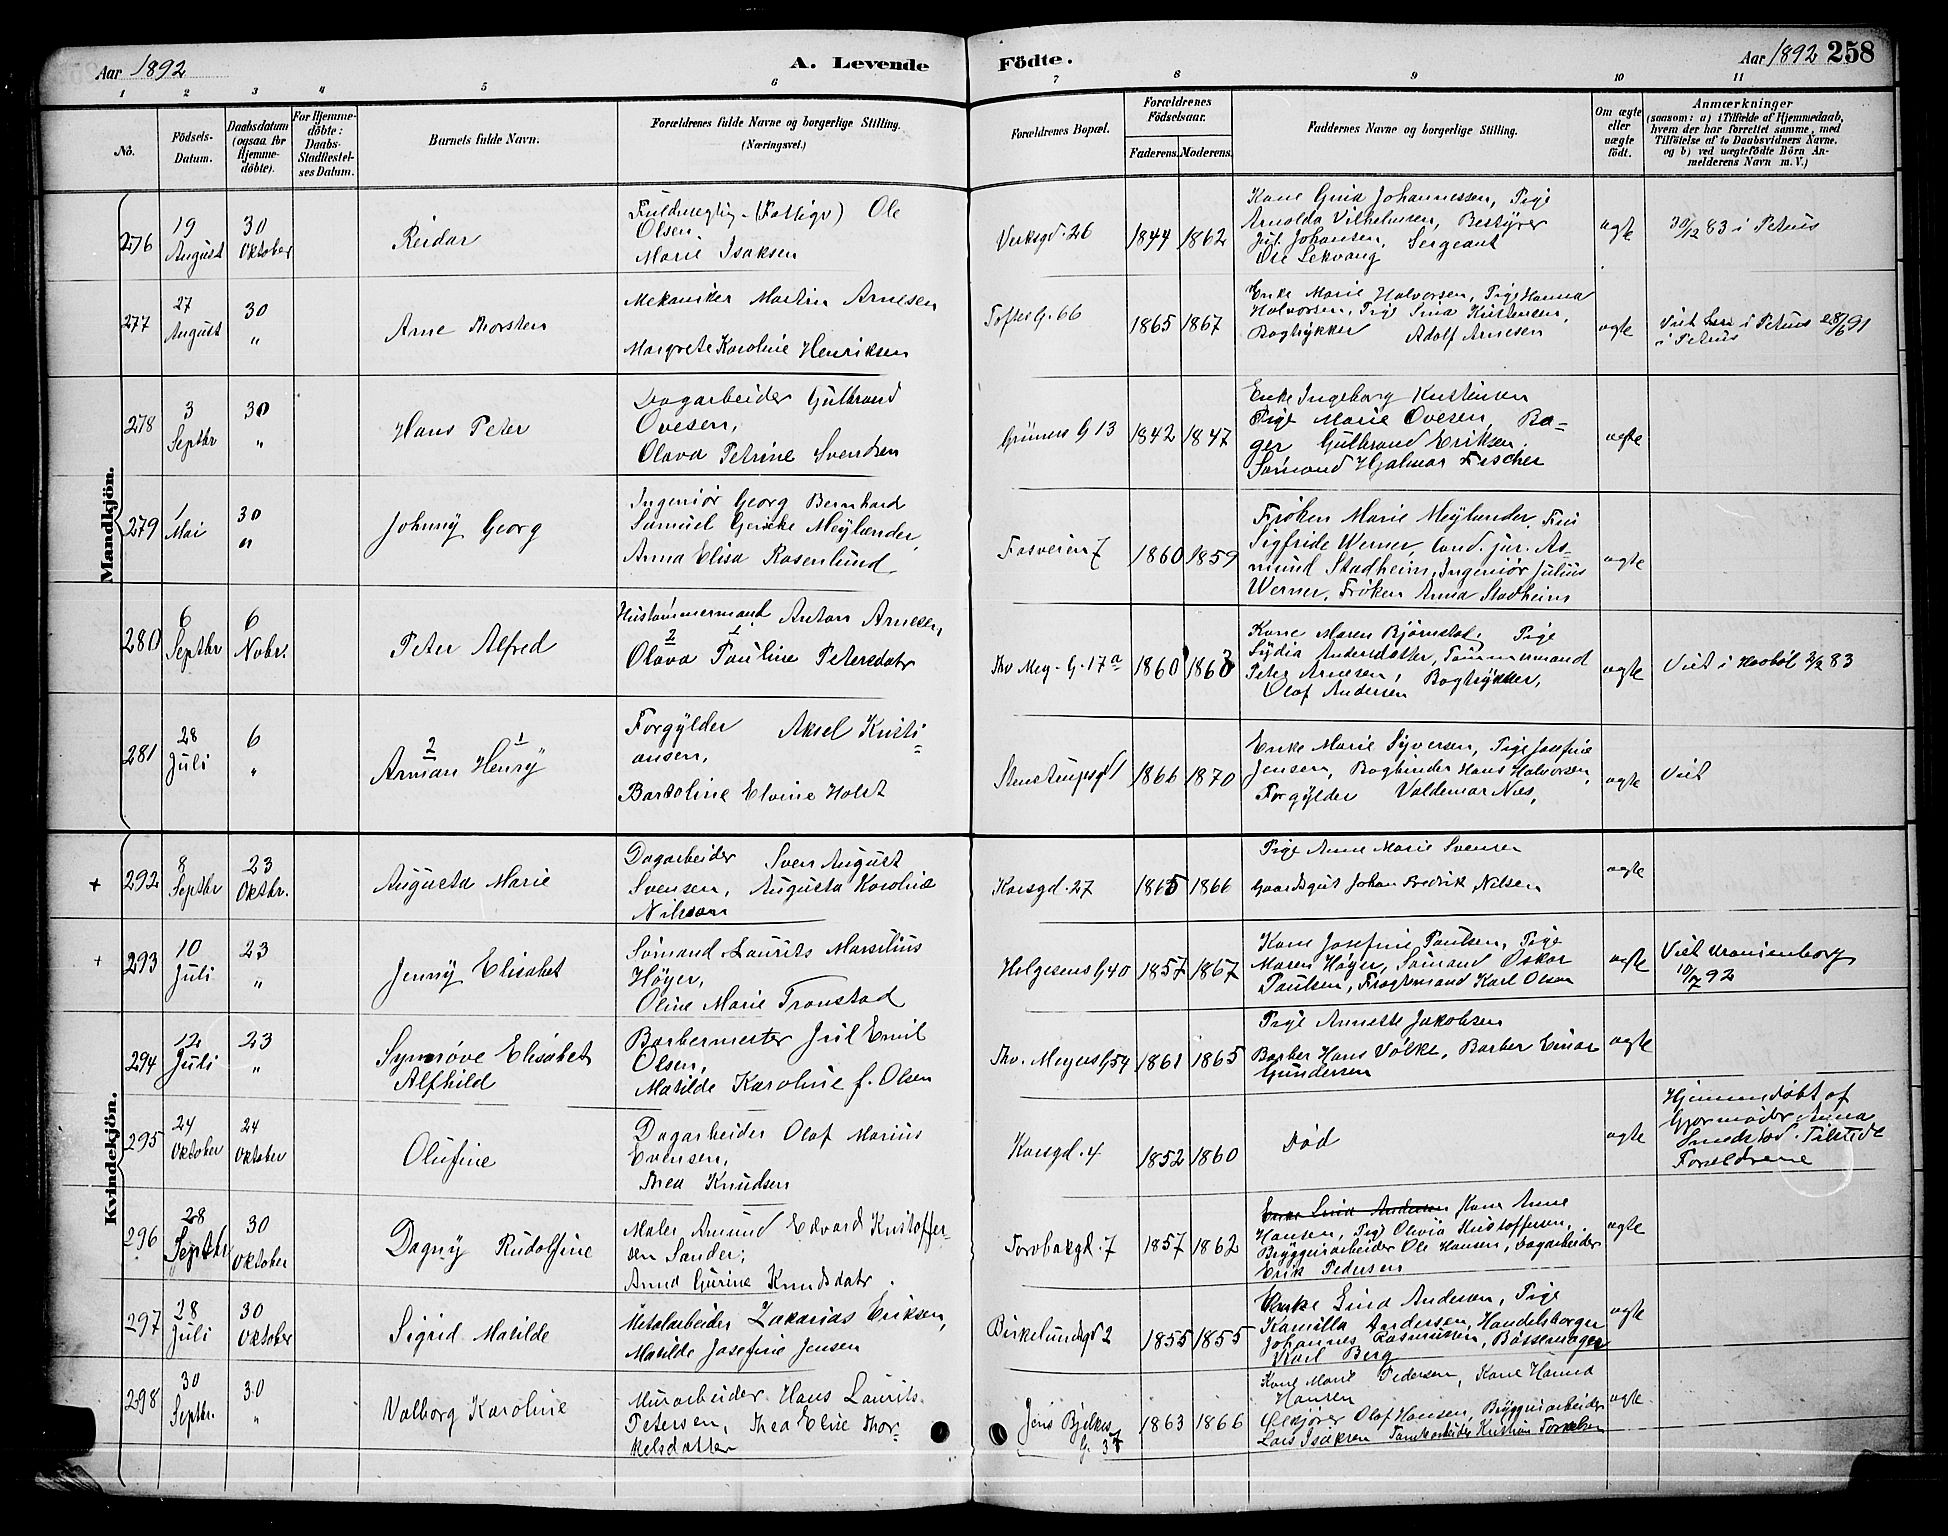 Aar 1892
A. Levende
Födte.
Aar 1892 258
1 2 3 4 5 6 7 8 9 10 11
No.
Födsels-
Datum.
Daabsdatum
(ogsaa for
Hjemme-
döbte).
For Hjemme-
döbte:
Daabs-
Stadfæstel-
ses Datum.
Barnets fulde Navn.
Forældrenes fulde Navne og borgerlige Stilling.
(Næringsvei.)
Forældrenes Bopæl.
Forældrenes
Födselsaar.
Faderens. Moderens.
Faddernes Navne og borgerlige Stilling.
Om ægte
eller
uægte
födt.
Anmærkninger
(saasom: a) i Tilfælde af Hjemmedaab,
hvem der har forrettet samme, med
Tilföielse af to Daabsvidners Navne,
og b) ved uægtefödte Börn An-
melderens Navn m. V.)
Mandkjön.
276
19
August
30
Oktober
Reidar
Fuldmegtig (Fattigv) Ole
Olsen,
Marie Isaksen
Verksgd. 26
1844 1862
Kone Gina Johannessen, Pige
Arnolda Vilhelmsen, Bestyrer
Jul. Johansen, Sergeant
Ole Lekvang
ægte
30/12 83 i Petrus
277
27
August
30
"
Arne Thorsten
Mekaniker Martin Arnesen
Margrete Karoline Henriksen
Toftes G. 66
1865 1867
Enke Marie Halvorsen, Pige Hanna
Halvorsen, Pige Lina Kristensen,
Bogtrykker Adolf Arnesen
ægte
Viet i Petrus 28/6 91
i Petrus
278
3
Septbr
30
"
Hans Peter
Dagarbeider Gulbrand
Ovesen,
Olava Petrine Svendsen
Grüners G 13
1842 1847
Enke Ingeborg Kristensen
Pige Marie Ovesen, Ba-
ger Gulbrand Eriksen,
Sømand Hjalmar Fischer
ægte
279
1
Mai
30
"
Johnny Georg
Ingeniør Georg Bernhard
Samuel Gericke Meylænder,
Anna Elisa Rosenlund
Fosveien 7
1860 1859
Frøken Marie Meylænder, Frue
Sigfride Werner, Cand. jur. As-
mund Stadheim, Ingeniør Julius
Werner, Frøken Anna Stadheim
ægte
280
6
Septbr
6
Novbr.
Peter Alfred
Hustømmermand Anton Arnesen,
2 1
Olava Pauline Petersdatr
Thv Mey. G. 17a
1860 1863
Kone Maren Bjørnstad, Pige
Lydia Andersdatter, Tømmermand
Peter Arnesen,
Olaf Andersen Bogtrykker,
ægte
Viet i Haabøl 2/2 83
281
28
Juli
6
"
2 1
Arman Henry
Forgylder Aksel Kristi-
ansen,
Bartoline Elvine Holst
Stenstrupsgd 1
1866 1870
Enke Marie Syversen, Pige Josefine
Jensen, Bogbinder Hans Halvorsen,
Forgylder Valdemar Nies,
ægte
Viet
Kvindekjön.
+ 292
8
Septbr
23
Oktbr.
Augusta Marie
Dagarbeider Sven August
Svensen, Augusta Karoline
Nilsson
Korsgd. 27
1865 1866
Pige Anne Marie Svensen
Gaardsgut Johan Fredrik Nilsen
ægte
+ 293
10
Juli
23
"
Jenny Elisabet
Sømand Laurits Marsilius
Høyer,
Oline Marie Tronstad
Helgesens G 40
1857 1867
Kone Josefine Paulsen, Pige
Maren Høyer, Sømand Oskar
Paulsen, Fragtemand Karl Olsen
ægte
Viet Uranienborg
10/7 92
294
12
Juli
23
"
Synnøve Elisabet
Alfhild
Barbermester Juil Emil
Olsen,
Matilde Karoline f. Olsen
Thv. Meyers G 54
1861 1865
Pige Annette Jakobsen
Barber Hans Völke, Barber Einar
Gundersen
ægte
295
24
Oktober
24
Oktober
Olufine
Dagarbeider Olaf Marius
Evensen,
Thea Knudsen
Korsgd. 4
1852 1860
Død
ægte
Hjemmedøbt af
Gjormoder Anna
Smedstad. Tilstede
Forældrene
296
28
Septbr
30
Oktober
Dagny Rudolfine
Maler Amund Edvard Kristoffer-
sen Sander,
Anna Gurine Knudsdatr.
Torvbakgd. 7
1857 1862
Enke Lina Andersen Kone Anne
Hansen, Pige Olivia Kristoffersen,
Bryggeriarbeider Ole Hansen, Dagarbeider
Erik Pedersen
ægte
297
28
Juli
30
Oktober
Sigrid Matilde
Metalarbeider Zakarias Eriksen,
Matilde Josefine Jensen
Birkelundsgd 2
1855 1855
Enke Lina Andersen, Pige
Kamilla Andersen, Handelsborger
Johannes Rasmussen, Bøssemager
Karl Berg
ægte
298
30
Septbr.
30
"
Valborg Karoline
Murarbeider Hans Laurits
Petersen, Thea Elise Thor-
kelsdatter
Jens Bjelkes
G 37
1863 1866
Kone Marie Pedersen, Kone Hanna
Hansen
Ølkjører Olaf Hansen, Bryggeriarbeider
Lars Isaksen Tomtearbeider Kristian Torkelsen
ægte